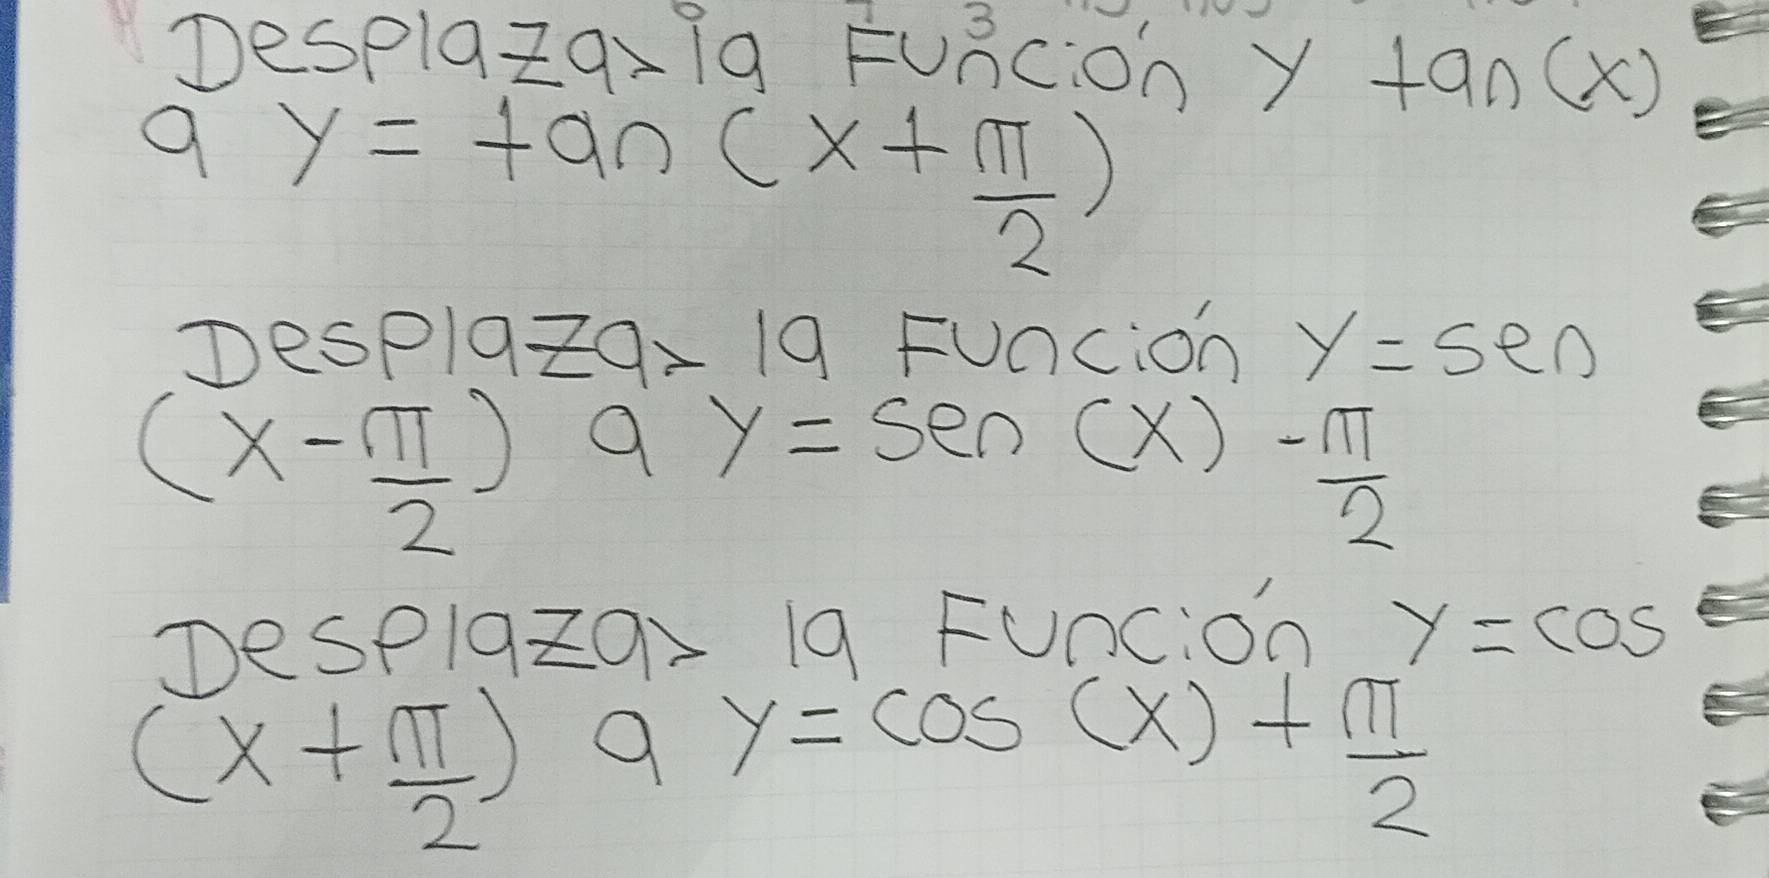 Desplazar la Función y tan(x)
a y = tan (x + π/2)
Desplazar la Función y = sen
(x - π/2) a y = sen (x) - π/2
Desplazar la Función y = cos
(x + π/2) a y = cos (x) + π/2